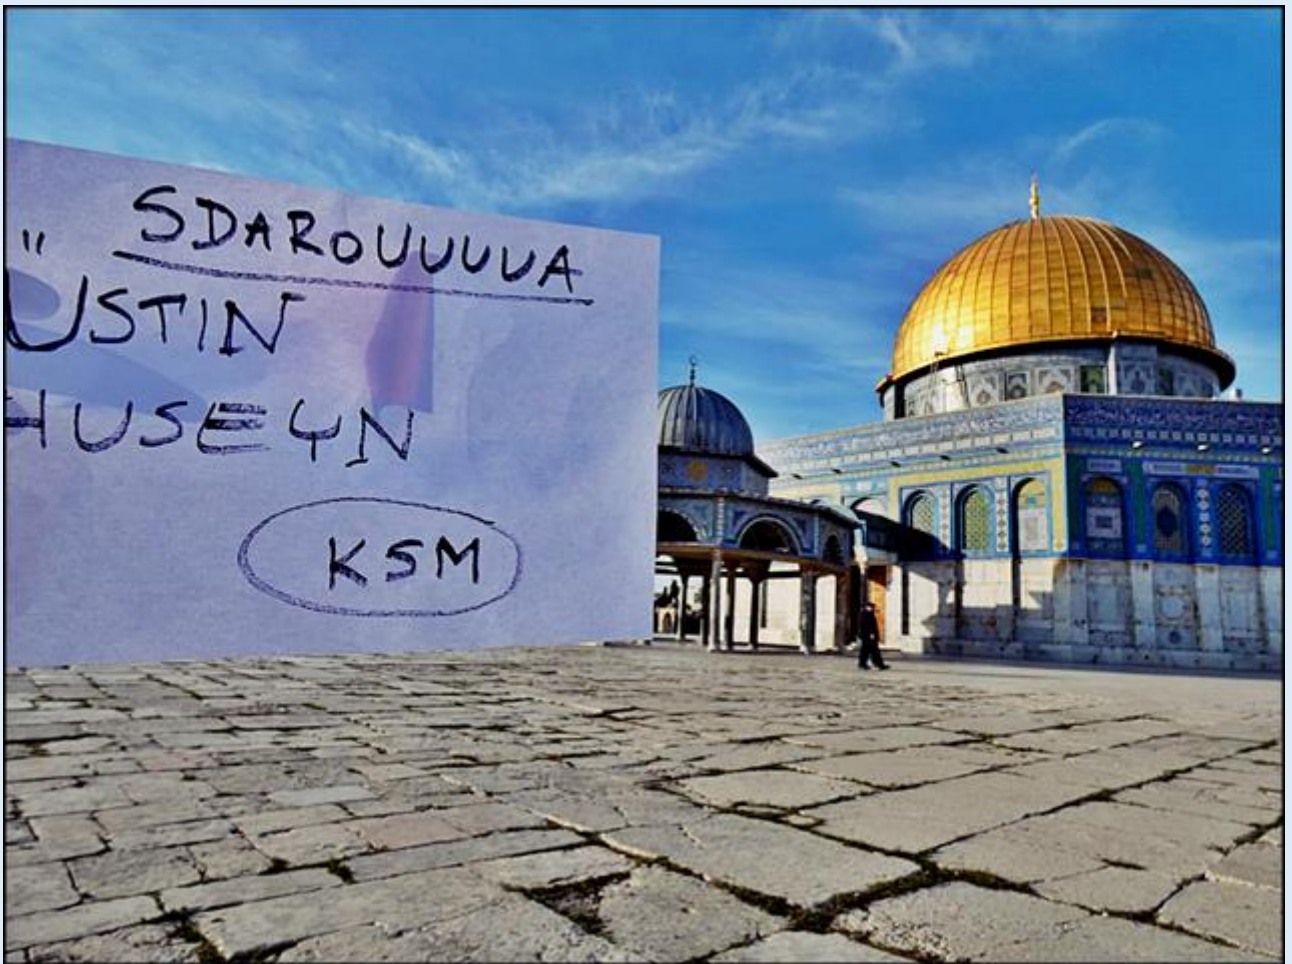 SDAROUUUUA
ÜSTIN
HUSEYN
KSM